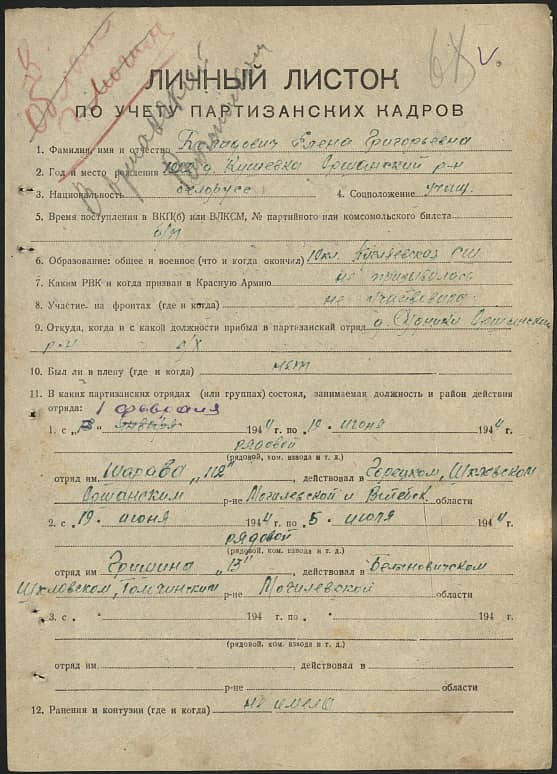 ЛИЧНЫЙ ЛИСТОК
ПО УЧЕТУ ПАРТИЗАНСКИХ КАДРОВ
1. Фамилия, имя и отчество Елена Григорьевна
2. Год и место рождения д. Кишевка Оршанский р-н
3. Национальность белорусс 4. Соцположение учащ.
5. Время поступления в ВКП(б) или ВЛКСМ, № партийного или комсомольского билета
б/п
6. Образование: общее и военное (что и когда окончил) 10 кл. СШ
7. Каким РВК и когда призван в Красную Армию не призывалась
8. Участие на фронтах (где и когда) не участвовала
9. Откуда, когда и с какой должности прибыл в партизанский отряд д. Оршанский
р-н с/х
10. Был ли в плену (где и когда) нет
11. В каких партизанских отрядах (или группах) состоял, занимаемая должность и район действия
отряда: 1 февраля
1. с „ “ января 1944 г. по 19 июня 1944 г.
рядовой
(рядовой, ком. взвода и т. д.)
отряд им Шарава „112", действовал в Горецком, Шкловском
Оршанским р-не Могилевской и Витебск области
2. с 19 июня 1944 г. по 5 июля 1944 г.
рядовой
(рядовой, ком. взвода и т. д.)
отряд им Гришина „13", действовал в Белыновичском
Шкловском, р-не Могилевской области
3. с „ “ 194 г. по „ “ 194 г.
(рядовой, ком. взвода и т. д.)
отряд им , действовал в
р-не области
12. Ранения и контузии (где и когда) не имела